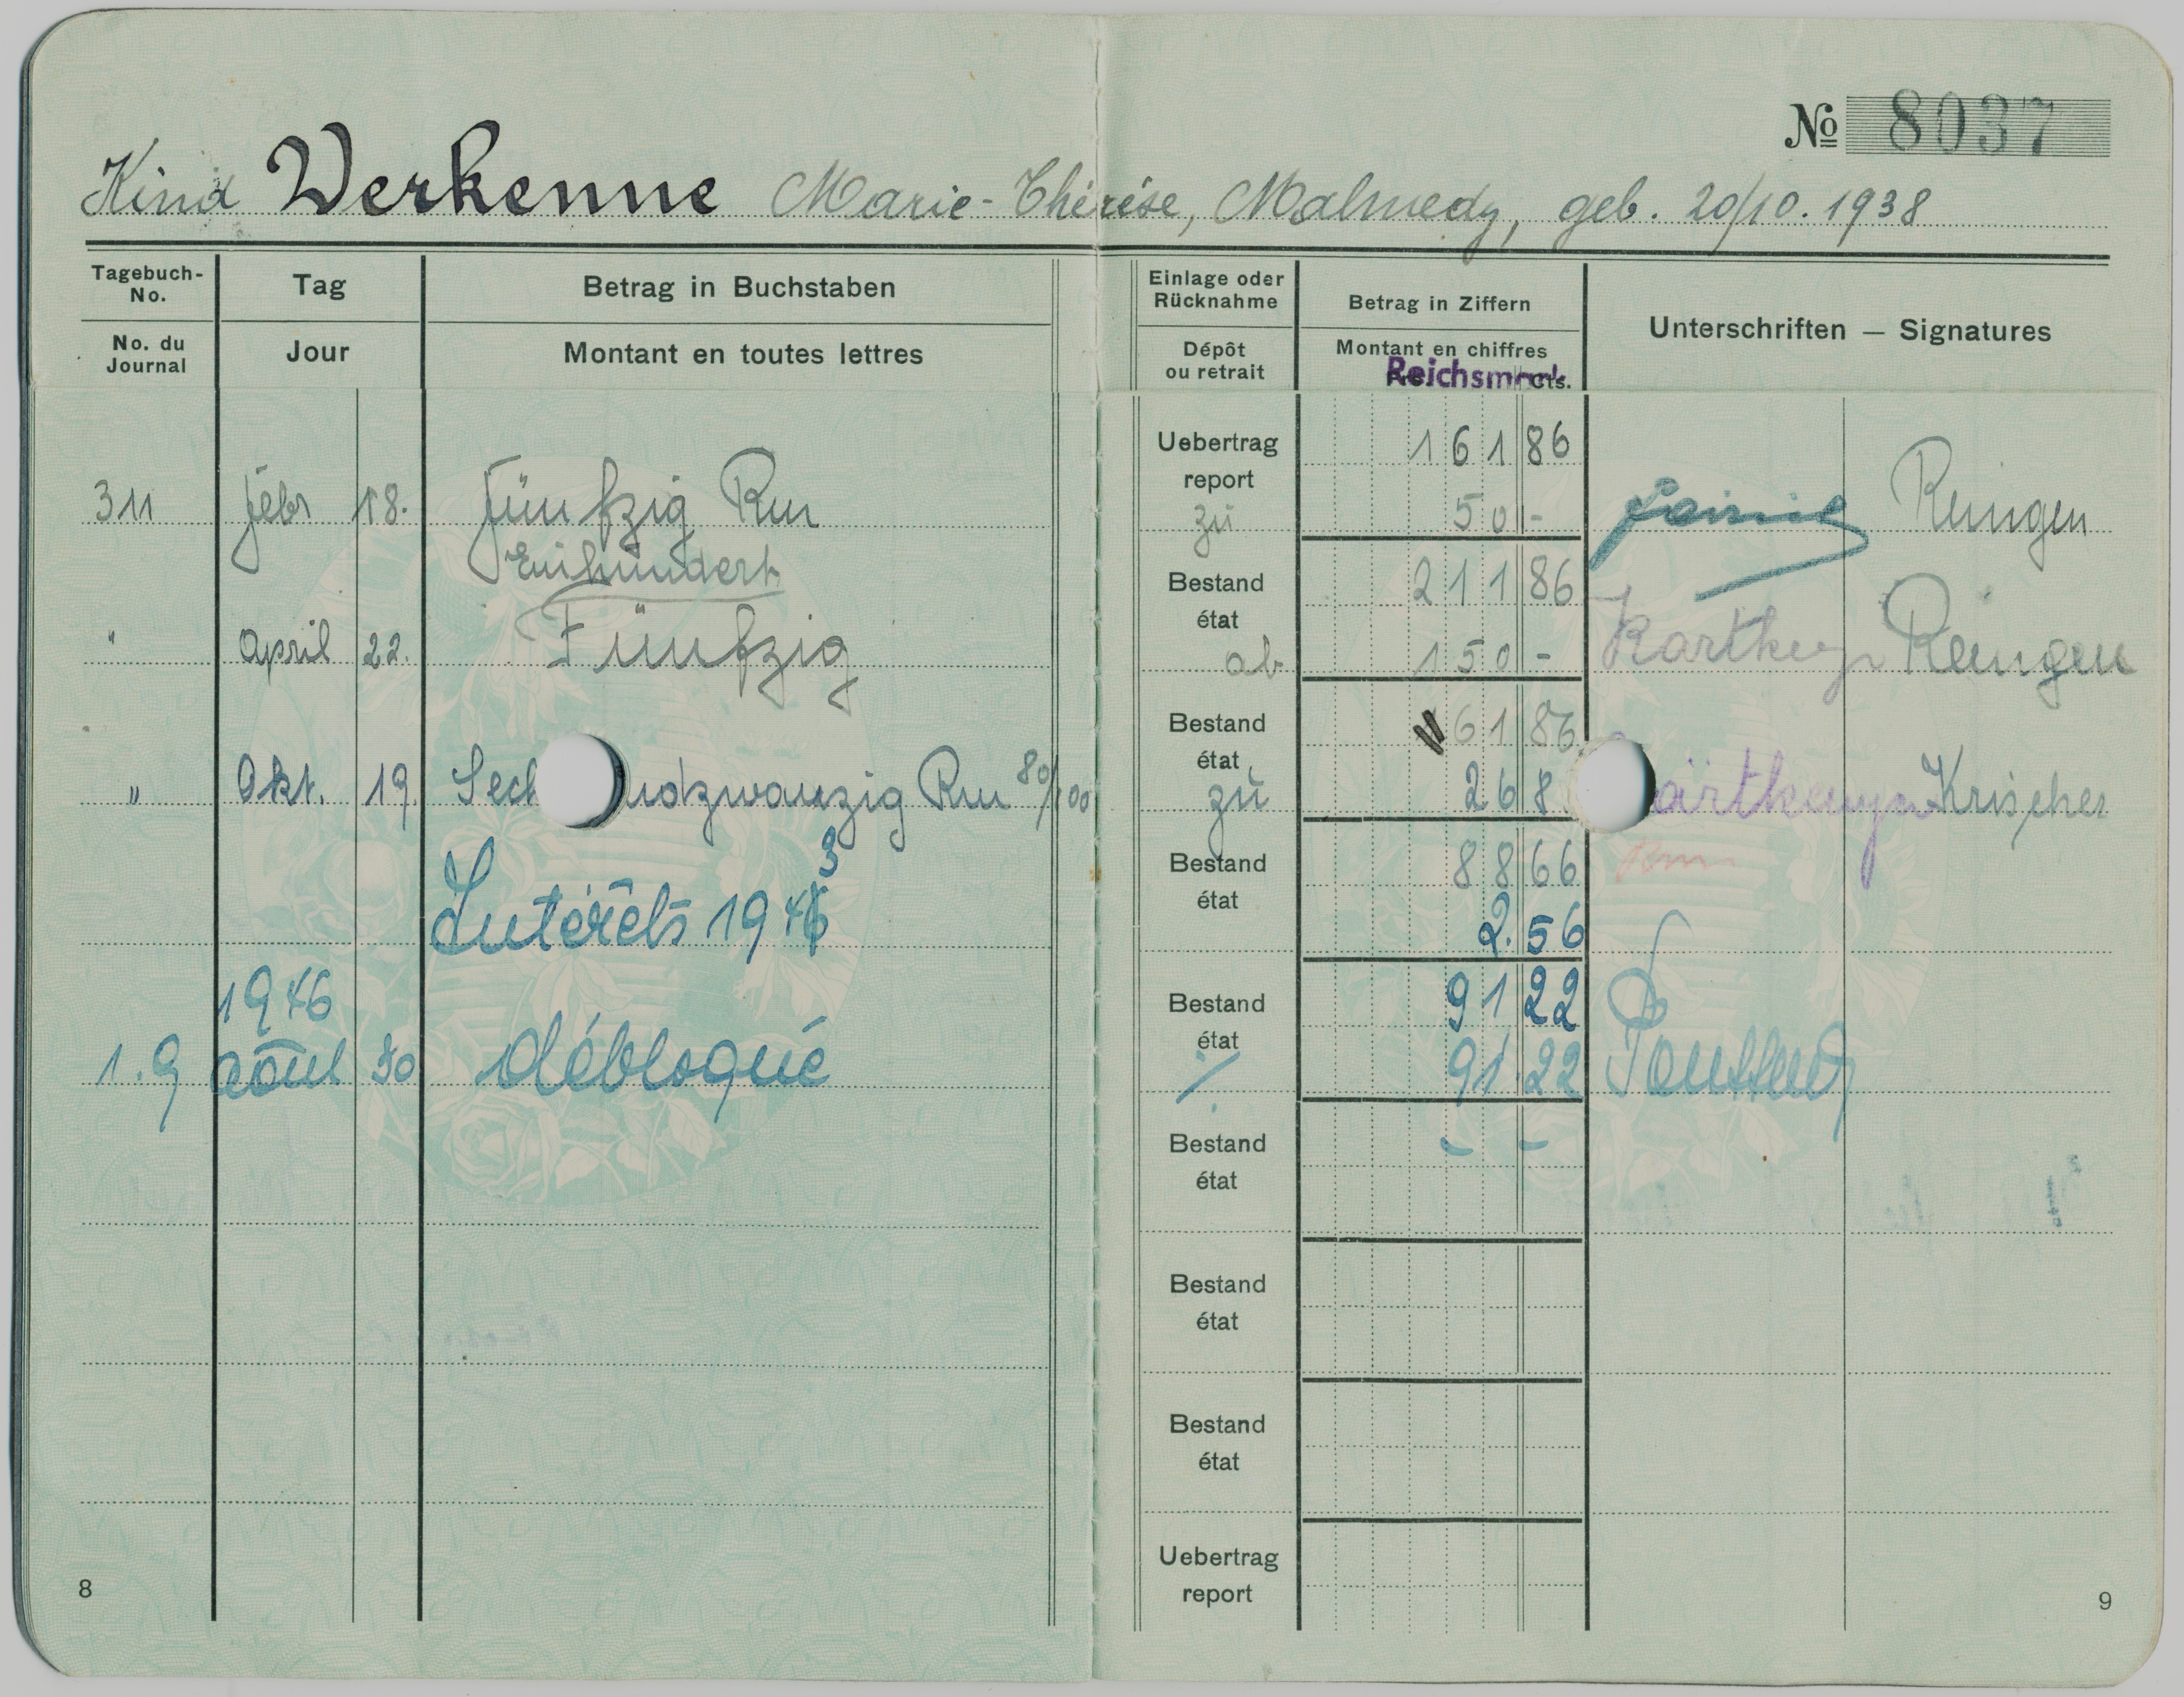 No 8037
Kind Werkenne Marie-Thérése, Malmedy, geb. 20/10. 1938
Tagebuch-No. Tag Betrag in Buchstaben Einlage oder Rücknahme Betrag in Ziffern Unterschriften — Signatures
No. du Journal Jour Montant en toutes lettres Dépôt ou retrait Montant en chiffres
Reichsmark cts.
Uebertrag report 161 86
311 Febr 18. Fünfzig Rm zu 50 - Reingen
Einhundert Bestand état 211 86
" April 22. Fünfzig ab 150 - Reingen
Bestand état 61 86
" Okt. 19. Sech undzwanzig Rm 80/100 zu 26 8 Krischer
Bestand état 88 66 Rm
Intérêts 1943 2.56
1946 Bestand état 91 22
1.9 août 30 débloqué 91.22
Bestand état - -
Bestand état
Bestand état
Uebertrag report
8 9